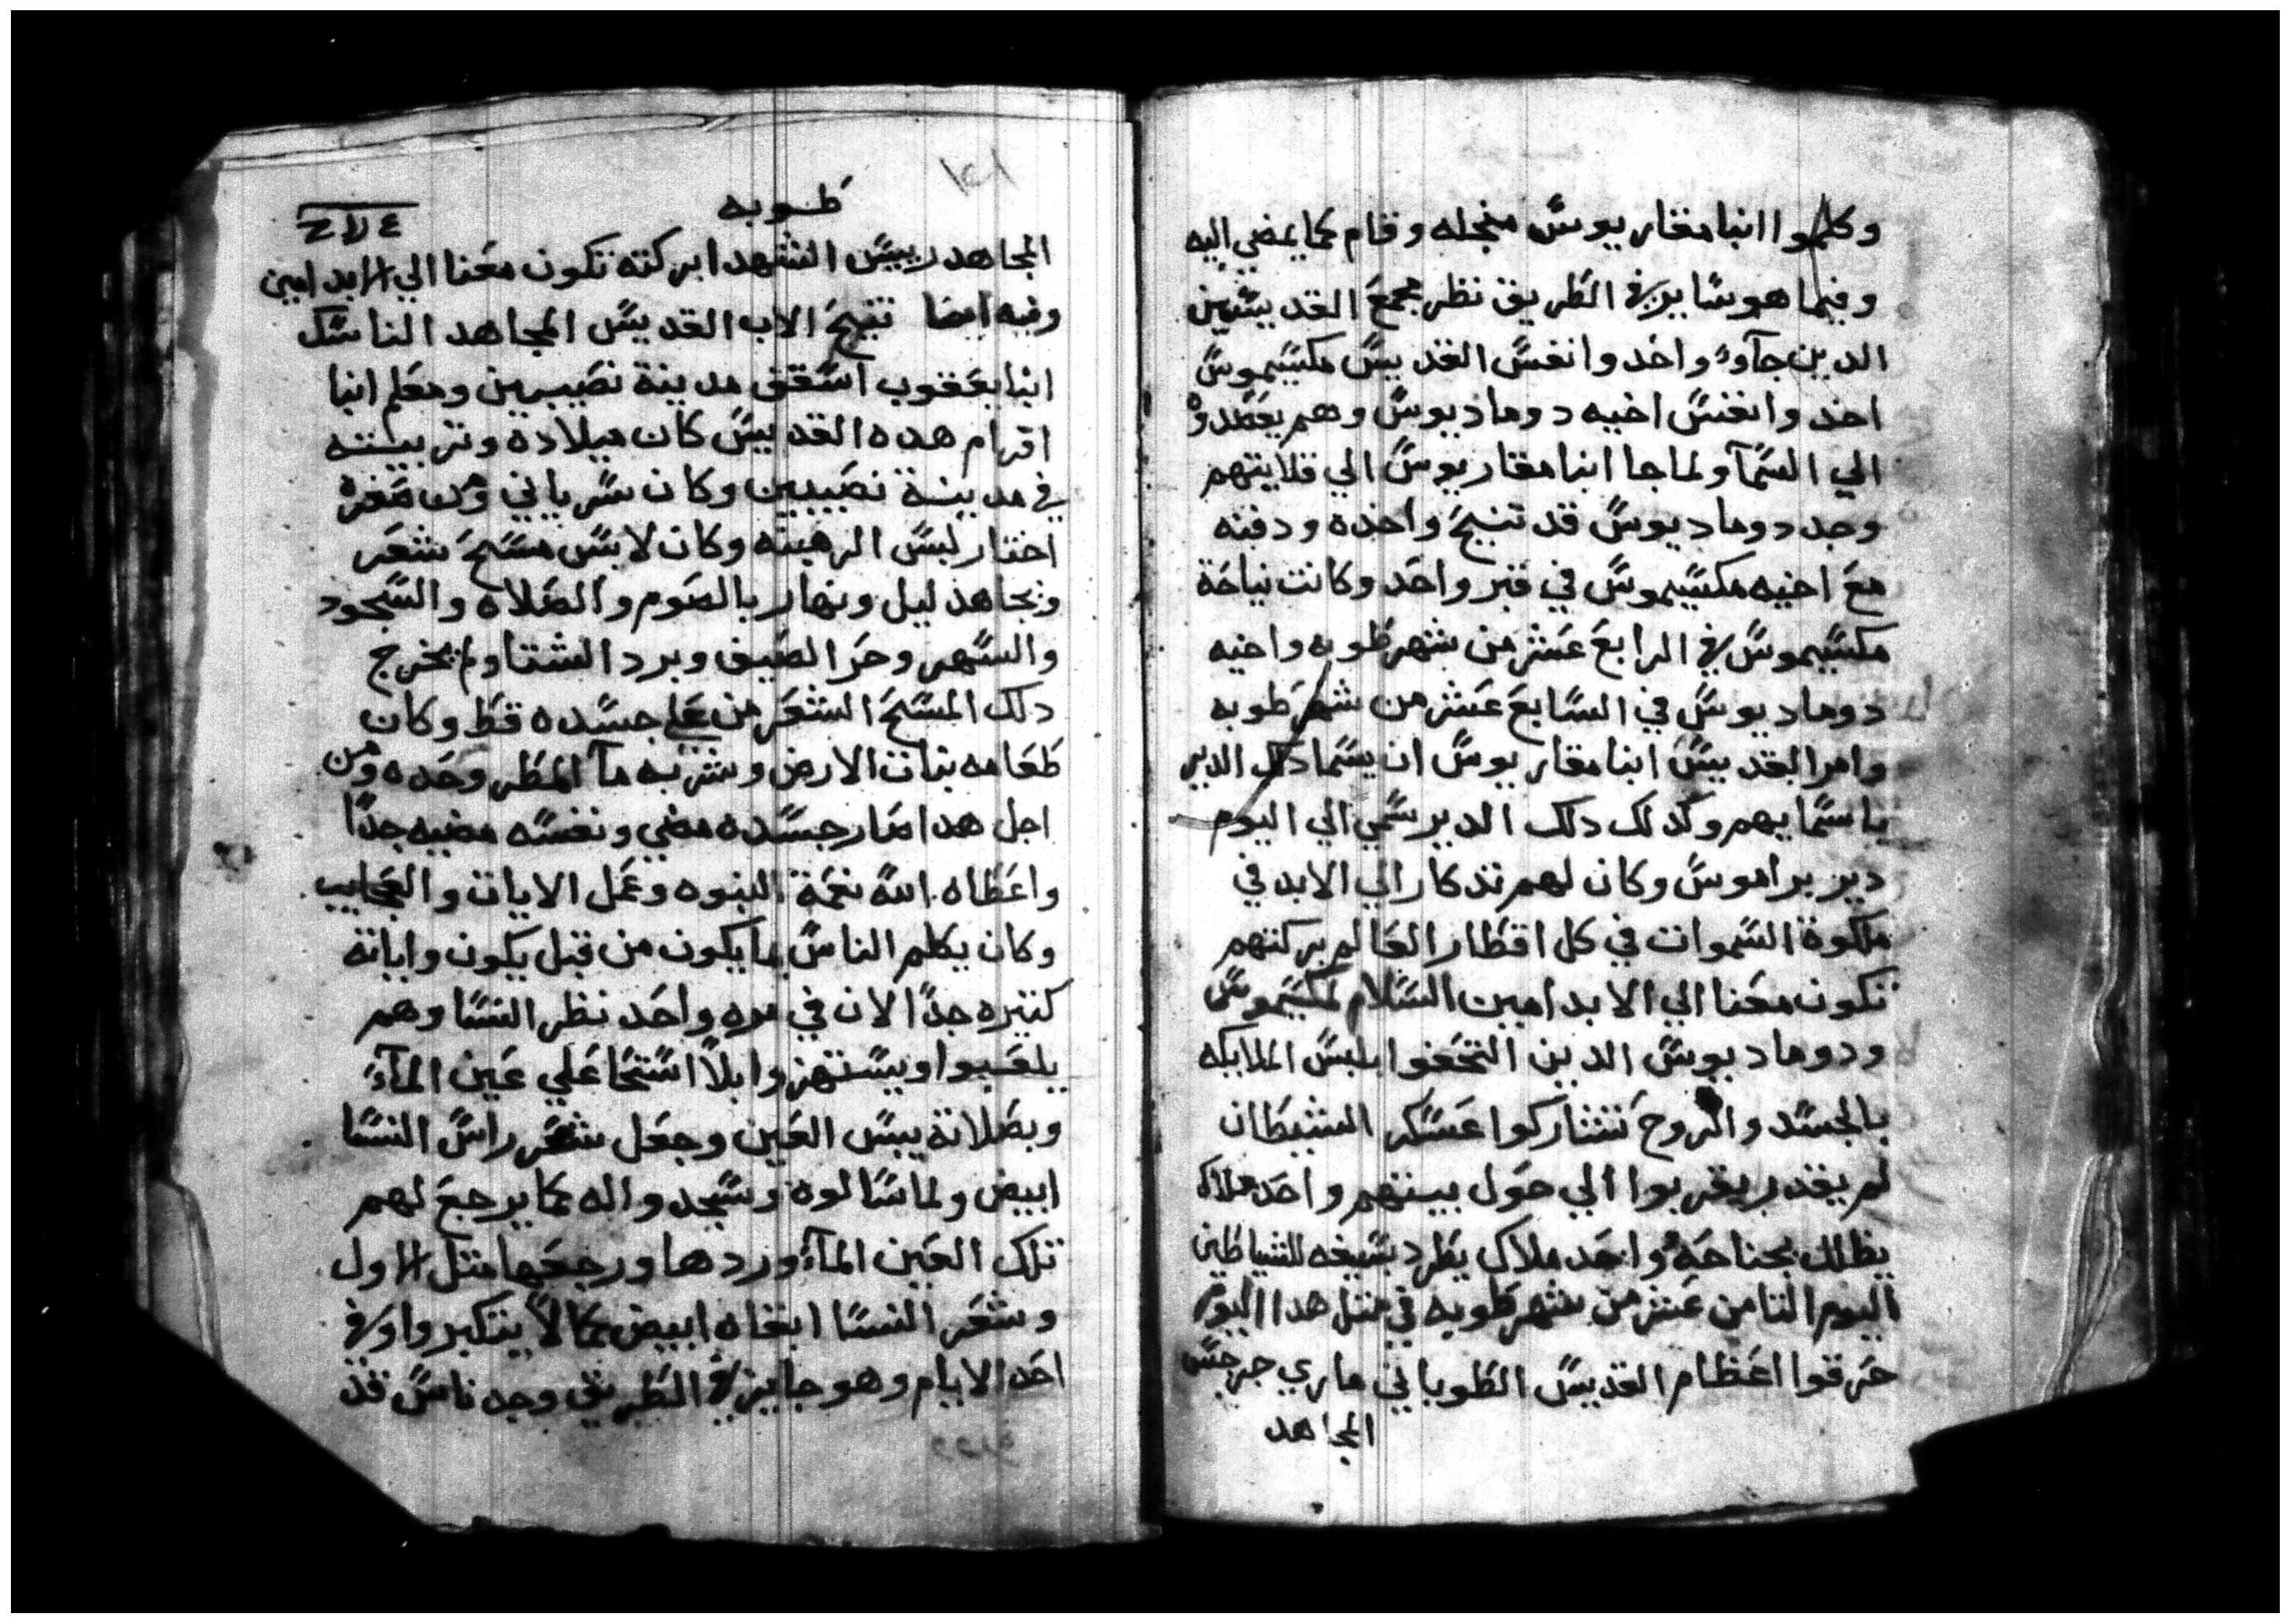 وكلموا انبا مقاريوس منجله وقام كما يمضي اليه
وفيما هو ساير في الطريق نظر مجمع القديسين
الدين جآوء واخد وانفس القديس مكسيموس
اخد وانفس اخيه دوماديوس وهم يصعدوه
الي السمآ ولما جا انبا مقاريوس الي قلايتهم
وجد دوماديوس قد تنيح واخده ودفنه
مع اخيه مكسيموس في قبر واحد وكانت نياحة
مكسيموس في الرابع عشر من شهر طوبه واخيه
دوماديوس في السابع عشر من شهر طوبه
وامر القديس انبا مقاريوس ان يسما دلك الدير
باسمايهم وكدلك دلك الدير سمي الي اليوم
دير براموس وكان لهم تذكار الي الابد في
ملكوة السموات في كل اقطار العالم بركتهم
تكون معنا الي الابد امين السلام لمكسيموس
ودوماديوس الدين التحفوا بلبس الملايكه
بالجسد والروح تشاركوا عسكر الشيطان
لم يقدر يقربوا الي حول بيتهم واحد ملاك
يظلل بجناحه واحد ملاك يطرد بسيفه للشياطين
اليوم التامن عشر من شهر طوبه في متل هدا اليوم
حرقوا اعظام القديس الطوباني ماري جرجس
المجاهد
١٥١
طوبه
المجاهد رييس الشهدا بركته تكون معنا الي الابد امين
وفيه ايضا تنيح الاب القديس المجاهد الناسك
انبا يعقوب اسقف مدينة نصيبين ومعلم انبا
افرام هده القديس كان ميلاده وتربيتة
في مدينة نصيبين وكان سرياني ومن صغره
اختار لبس الرهبنه وكان لابس مسح شعر
ونجاهد ليل ونهار بالصوم والصلاه والسجود
والسهر وحر الصيف وبرد الشتا ولم يخرج
دلك المسح الشعر من علي جسده قط وكان
طعامه نبات الارض وشربه مآ المطر وحده ومن
اجل هدا صار جسده مضي ونفسه مضيه جدًا
واعطاه الله نعمة النبوه وعمل الايات والعجايب
وكان يكلم الناس بما يكون من قبل يكون واياتة
كتيره جدًا الان في مره واحد نظر النسا وهم
يلعبوا ويستهزوا بلا استحا علي عين المآء
وبصلاتة يبس العين وجعل شعر راس النسا
ابيض ولما سالوه وسجدوا له كما يرجع لهم
تلك العين المآء وردها ورجعها متل الاول
وشعر النسا ابقاه ابيض كما لا يتكبروا وفي
احد الايام وهو جايز في الطريق وجد ناس قد